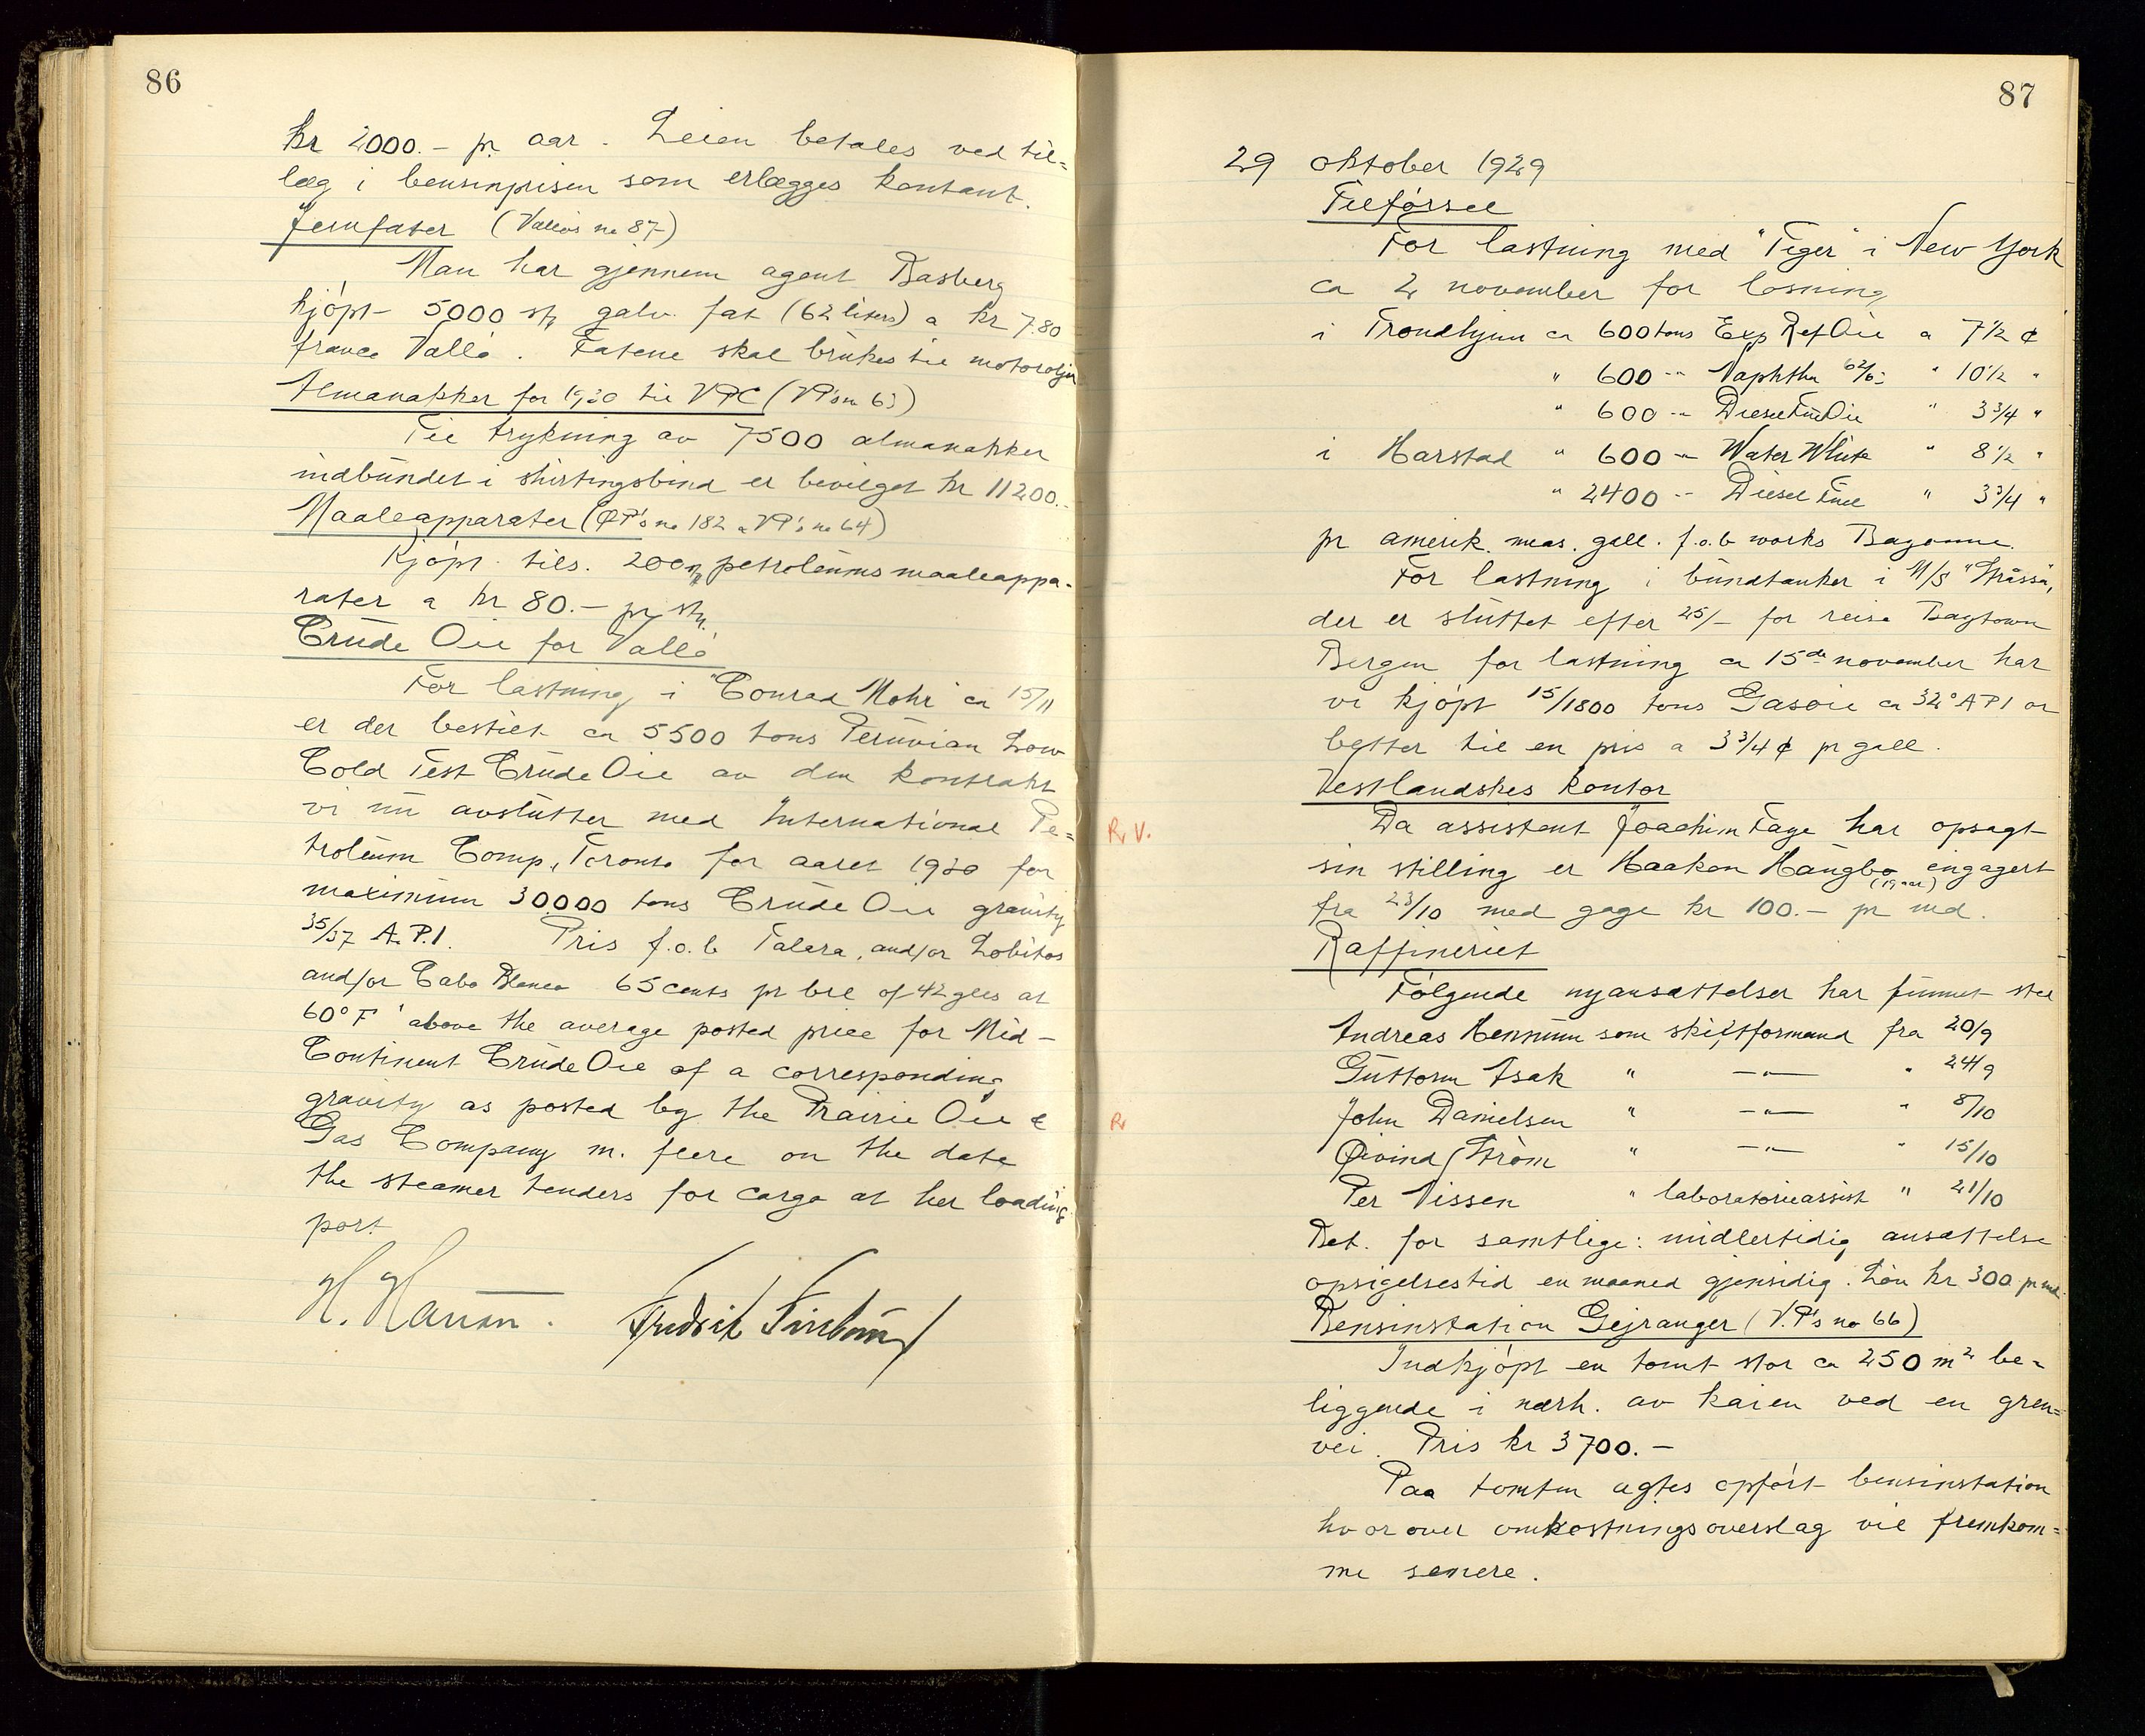 86
kr 2000.- pr. aar. Leien betales ved til=
læg i bensinprisen som erlægges kontant.
Jernfater (Valløs no 87)
Man har gjennem agent Basberg
kjöpt 5000 stk galv. fat (62 liters) a kr 7.80
franco Vallö. Fatene skal brukes til motoroljer
Almanakker for 1930 til VPC (VP's no 63)
Til trykning av 7500 almanakker
indbundet i shirtingsbind er bevilget kr 11200.-
Maaleapparater (ØP's no 182 a VP's no 64)
Kjöpt tils. 200 stk petroleums maaleappa-
rater a kr 80.- pr stk.
Crude Oil for Vallö
For lastning i "Conrad Mohr" ca 15/11
er der bestilt ca 5500 tons Peruvian Low
Cold Test Crude Oil av den kontrakt
vi nu avslutter med International Pe=
troleum Comp, Toronto for aaret 1930 for
maximum 30000 tons Crude Oil gravity
35/37 A.P.I. Pris f.o.b Talara, and/or Lobitos
and/or Cabo Blanco 65 cents pr brl of 42 gls at
60° F above the average posted price for Mid-
Continent Crude Oil of a corresponding
gravity as posted by the Prairie Oil &
Gas Company m. flere on the date
the steamer tenders for cargo at her loading
port.
H. Hansen. Fredrik
87
29 oktober 1929
Tilförsel
For lastning med "Tiger" i New York
ca 2 november for losning
i Trondhjem ca 600 tons Exp Ref Oil a 7 1/2 ¢
" 600 -"- Naphtha 62/63 " 10 1/2 "
" 600 -"- Diesel Fuel Oil " 3 3/4 "
i Harstad " 600 -"- Water White " 8 1/2 "
" 2400 -"- Diesel Fuel " 3 3/4 "
pr amerik. meas. gall. f.o.b works Bayonne.
For lastning i bundtanker i M/S "Stråssa",
der er sluttet efter 25/- for reise Baytown
Bergen for lastning ca 15de november har
vi kjöpt 15/1800 tons Gasoil ca 32° API or
better til en pris a 3 3/4 ¢ pr gall.
Vestlandskes kontor
R V.
Da assistent Joachim Faye har opsagt
sin stilling er Haakon Haugbo (19 aar) engagert
fra 23/10 med gage kr 100.- pr md.
Raffineriet
Fölgende nyansættelser har funnet sted
Andreas Hennum som skiftformand fra 20/9
Guttorm Isak " -"- " 24/9
R
John Danielsen " -"- " 8/10
Øivind Ström " -"- " 15/10
Per Nissen " laboratorieassist " 21/10
Bet. for samtlige: midlertidig ansættelse
opsigelsestid en maaned gjensidig. Lön kr 300 pr md.
Bensinstation Gejranger (V.P's no 66)
Indkjöpt en tomt stor ca 250 m² be-
liggende i nærh. av kaien ved en gren=
vei. Pris kr 3700.-
Paa tomten agtes opfört bensinstation
hvorover omkostningsoverslag vil fremkom=
me senere.